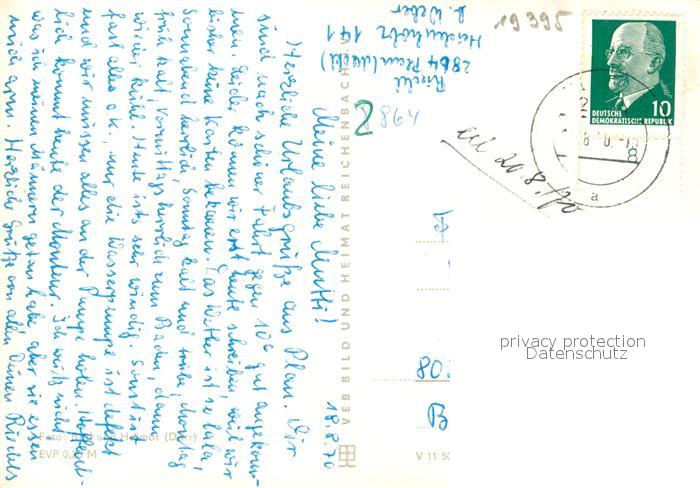 19395
DEUTSCHE
DEMOKRATISCHE REPUBLIK
10
a
Rischel
2864 Plau (Meckl)
Heidenholz 141
b. Weber
2864
20.8.70
18.8.70
Meine liebe Mutti!
Herzliche Urlaubsgrüße aus Plau. Wir
sind nach schöner Fahrt gegen 10 gut angekom-
men. Leider können wir erst heute schreiben, weil wir
bisher keine Karten bekamen. Das Wetter ist so lala,
Sonnabend herrlich, Sonntag kalt und trübe, Montag
früh kalt, vormittags herrlich zum Baden, dann
wieder kühl. Heute ists sehr windig. Sonst ist
fast alles o.k., nur die Wasserpumpe ist defekt
und wir müssen alles an der Pumpe holen. Hoffent-
lich kommt heute der Monteur. Ich weiß nicht
was ich meinen Männern getan habe aber sie essen
mich arm. Herzliche Grüße von allen Deinen Rischels
VEB BILD UND HEIMAT REICHENBACH
Foto: und Helmut
EVP 0,20 M
V 11 50
80
B
privacy protection
Datenschutz